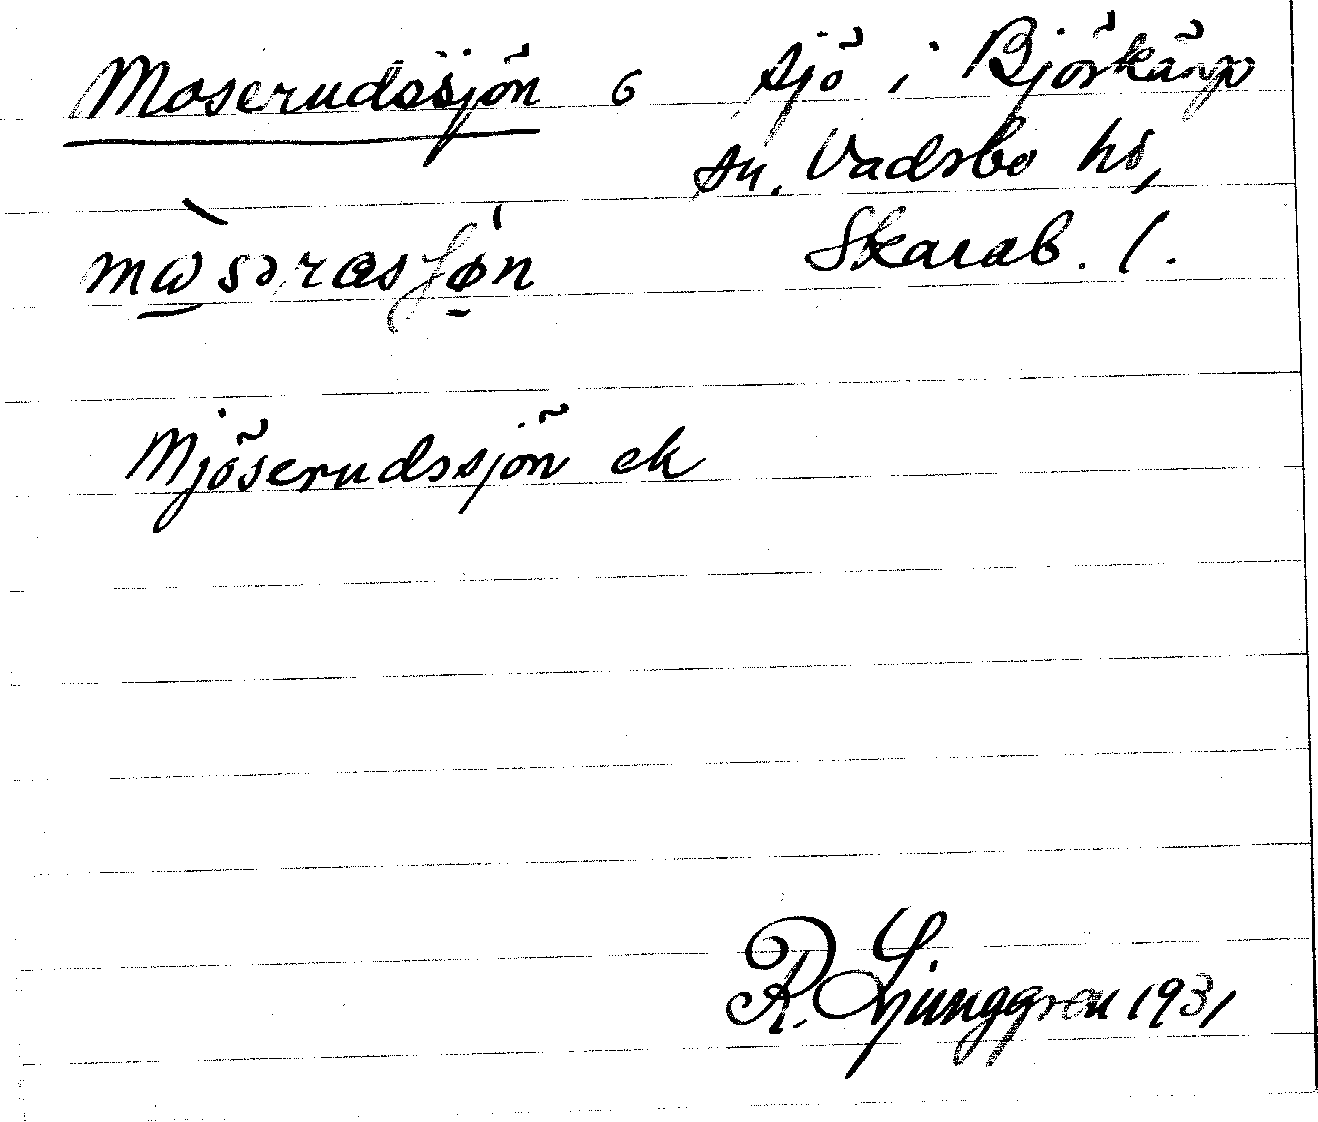 Moserudssjön 6 sjö i Björkäng
sn. Vadsbo hd,
Skarab. l.
Mjöserudssjön ek
R. Ljunggren 1931